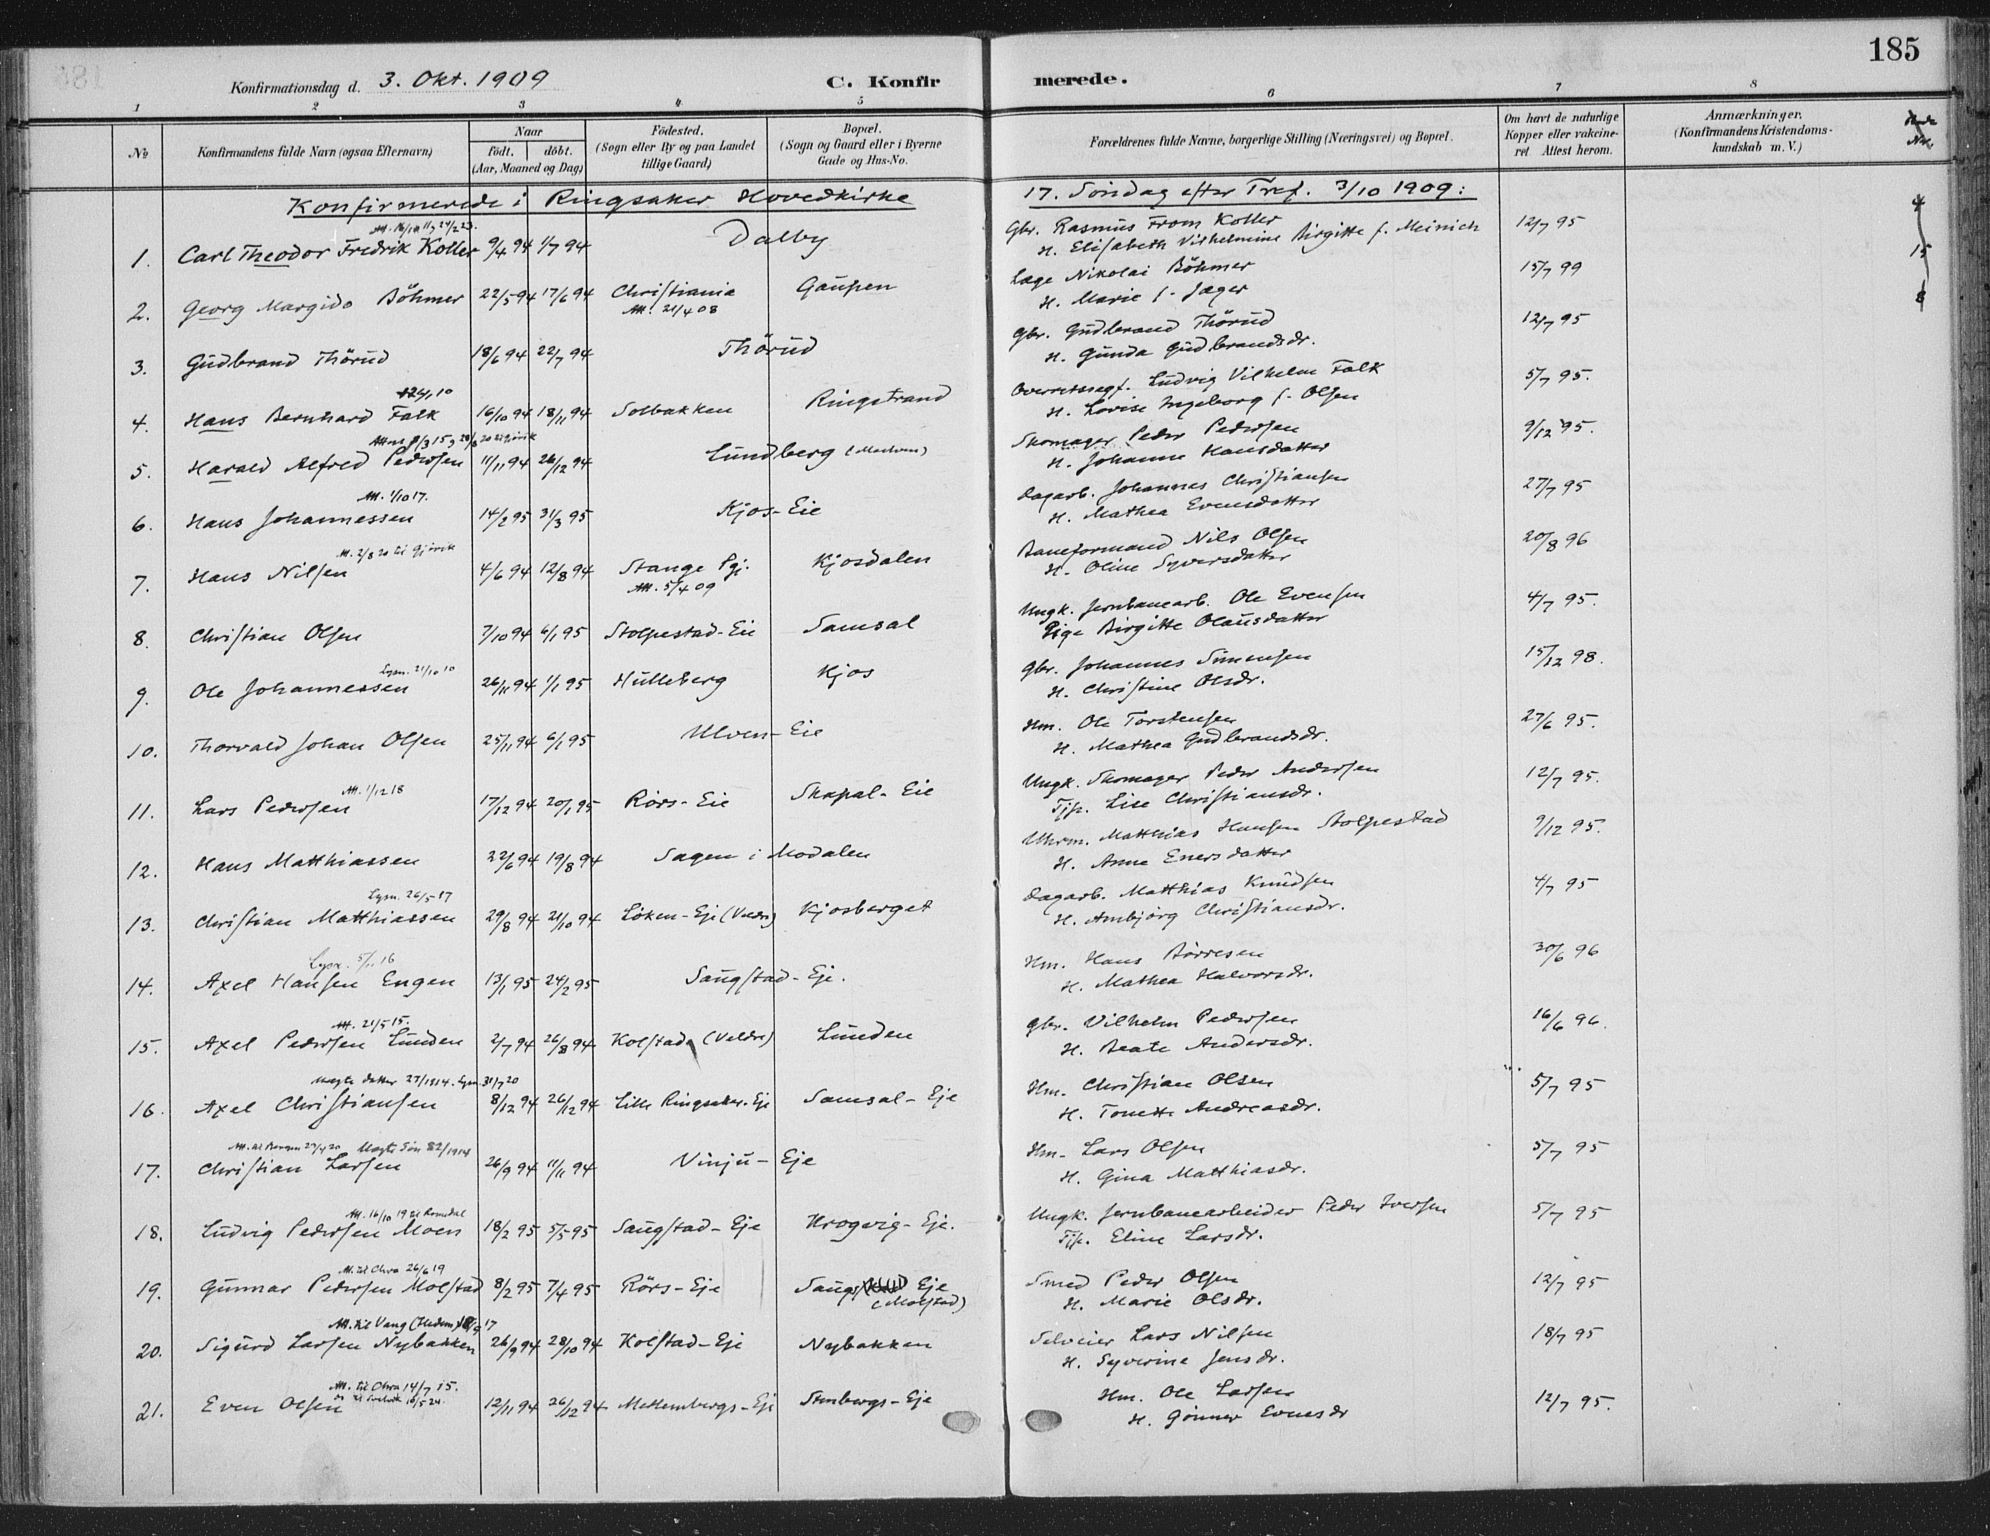 185
Konfirmationsdag d. 3. Okt. 1909 C. Konfirmerede.
1 2 3 4 5 6 7 8
No Konfirmandens fulde Navn (ogsaa Efternavn) Naar født. døbt. (Aar, Maaned og Dag) Fødested. (Sogn eller By og paa Landet tillige Gaard) Bopæl. (Sogn og Gaard eller i Byerne Gade og Hus-No.) Forældrenes fulde Navne, borgerlige Stilling (Næringsvei) og Bopæl. Om havt de naturlige Kopper eller vakcineret Attest herom. Anmærkninger. (Konfirmandens Kristendomskundskab m. V.)
Konfirmerede i Ringsaker Hovedkirke 17. Søndag efter Tref. 3/10 1909:
1. Carl Theodor Fredrik Koller 9/4 94 1/7 94 Dalby Gbr. Rasmus From Koller 12/7 95
H. Elisabeth Vilhelmine Birgitte f. Meinich
4
2. Georg Margido Bøhmer 22/5 94 17/6 94 Christiania Gaupen Læge Nikolai Bøhmer 15/7 99
Att. 21/4 08 H. Marie f. Jæger
15
8
3. Gudbrand Thörud 18/6 94 22/7 94 Thörud Gbr. Gudbrand Thörud 12/7 95
H. Gunda Gudbrandsdr.
4. Hans Bernhard Falk 16/10 94 18/11 94 Solbakken Ringstrand Overretssagf. Ludvig Vilhelm Falk 5/7 95.
H. Lovise Ingeborg f. Olsen
5. Harald Alfred Pedersen 11/11 94 26/12 94 Lundberg Skomager Peder Pedersen 9/12 95.
H. Johanne Hansdatter
Att. 1/10 17.
6. Hans Johannessen 14/2 95 31/3 95 Kjos-Eie Dagarb. Johannes Christiansen 27/7 95
H. Mathea Evensdatter
Att. 2/8 20 til Gjøvik
7. Hans Nilsen 4/6 94 12/8 94 Stange Pgj. Kjosdalen Baneformand Nils Olsen 20/8 96
Att. 5/4 09 H. Oline Syversdatter
8. Christian Olsen 7/10 94 6/1 95 Stolpestad-Eie Samsal Ungk. Jernbanearb. Ole Evensen 4/7 95.
Pige Birgitte Olausdatter
Lysn. 21/10 10
9. Ole Johannessen 26/11 94 1/1 95 Hulleberg Kjos Gbr. Johannes Simensen 15/12 98.
H. Christine Olsdr.
10. Thorvald Johan Olsen 25/11 94 6/1 95 Ulven-Eie Hm. Ole Torstensen 27/6 95.
H. Mathea Gudbrandsdr.
Att. 1/12 18
11. Lars Pedersen 17/12 94 20/1 95 Rörs-Eie Skapal-Eie Ungk. Skomager Peder Andersen 12/7 95.
Tjp. Lise Christiansdr.
12. Hans Matthiassen 22/6 94 19/8 94 Sagen i Modalen Uhrm. Matthias Hansen Stolpestad 9/12 95.
H. Anne Enersdatter
Lysn. 26/5 17
13. Christian Matthiassen 29/8 94 21/10 94 Löken-Eje (Veldre) Kjosberget Dagarb. Matthias Knudsen 4/7 95
H. Ambjörg Christiansdr.
Lysn. 5/11 16
14. Axel Hansen Engen 13/1 95 24/2 95 Saugstad-Eje. Hm. Hans Börresen 30/6 96
H. Mathea Halvorsdr.
Att. 21/5 15.
15. Axel Pedersen Lunden 2/7 94 26/8 94 Kolstad (Veldre) Lunden Gbr. Vilhelm Pedersen 16/6 96.
H. Beate Andersdr.
Uegte datter 27/1914. Lysn. 31/7 20
16. Axel Christiansen 8/12 94 26/12 94 Lille Ringsaker-Eje Samsal-Eje Hm. Christian Olsen 5/7 95
H. Tonette Andreasdr.
Att. til Bergen 27/4 20 Uegte Søn 82/1914
17. Christian Larsen 26/9 94 11/11 94 Vinju-Eje Hm. Lars Olsen 5/7 95
H. Gina Matthiasdr.
Att. 16/10 19 til Romedal
18. Ludvig Pedersen Moen 18/2 95 5/5 95 Saugstad-Eje Krogvig-Eje. Ungk. Jernbanearbeider Peder Iversen 5/7 95
Tjp. Eline Larsdr.
Att. til Chra 26/6 19
19. Gunnar Pedersen Molstad 8/2 95 7/4 95 Rörs-Eje Saugstad Eje Smed Peder Olsen 12/7 95
(Molstad) H. Marie Olsdr.
20. Sigurd Larsen Nybakken 26/9 94 28/10 94 Kolstad-Eje Nybakken Selveier Lars Nilsen 18/7 95
H. Syverine Jensdr.
Att. til Chra 14/7 15.
21. Even Olsen 12/11 94 26/12 94 Mellembergs-Eje Stenbergs-Eje Hm. Ole Larsen 12/7 95.
H. Gönner Evensdr